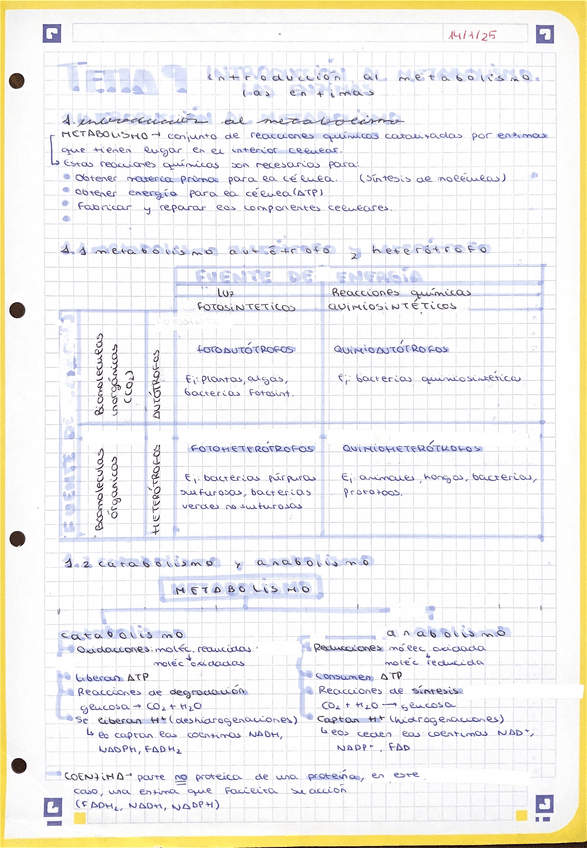 14/1/25
Introducción al metabolismo.
las enzimas
1. introducción al metabolismo
METABOLISMO → conjunto de reacciones químicas catalizadas por enzimas
que tienen lugar en el interior celular.
↳ Estas reacciones químicas son necesarias para:
• Obtener materia prima para la célula. (síntesis de moléculas)
• Obtener energía para la célula (ATP)
• Fabricar y reparar los componentes celulares.
1.1 metabolismo autótrofo y heterótrofo
FUENTE DE ENERGÍA
luz
FOTOSINTÉTICOS
Reacciones químicas
QUIMIOSINTÉTICOS
Biomoléculas
inorgánicas
(CO₂)
AUTÓTROFOS
FOTOAUTÓTROFOS
Ej: plantas, algas,
bacterias fotosint.
QUIMIOAUTÓTROFOS
Ej: bacterias quimiosintética
Biomoléculas
orgánicas
HETERÓTROFOS
FOTOHETERÓTROFOS
Ej: bacterias púrpuras
sulfurosas, bacterias
verdes no sulfurosas
QUIMIOHETERÓTROFOS
Ej: animales, hongos, bacterias,
protozoos.
1.2 catabolismo y anabolismo
METABOLISMO
catabolismo
• Oxidaciones moléc. reducidas
↓
moléc oxidadas
• Liberan ATP
• Reacciones de degradación
glucosa → CO₂ + H₂O
• Se liberan H⁺ (deshidrogenaciones)
↳ los captan las coenzimas NADH,
NADPH, FADH₂
anabolismo
• Reducciones moléc oxidada
↓
moléc reducida
• Consumen ATP
• Reacciones de síntesis
CO₂ + H₂O → glucosa
• Captan H⁺ (hidrogenaciones)
↳ los ceden las coenzimas NAD⁺,
NADP⁺, FAD
COENZIMA → parte no proteica de una proteína, en este
caso, una enzima que facilita su acción
(FADH₂, NADH, NADPH)